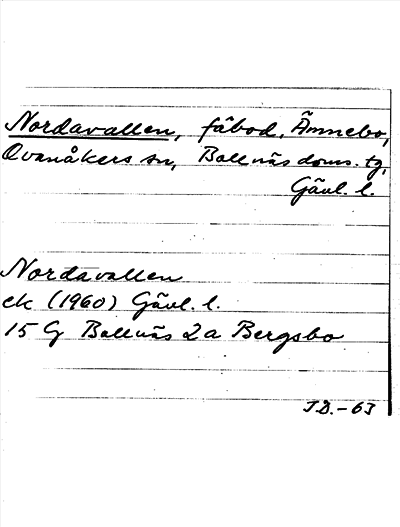 Nordavallen, fäbod, Ämnebo,
Ovanåkers sn, Bollnäs doms. tg,
Gävl. l.
Nordavallen
ek (1960) Gävl. l.
15 G Bollnäs 2a Bergsbo
J.D.-63